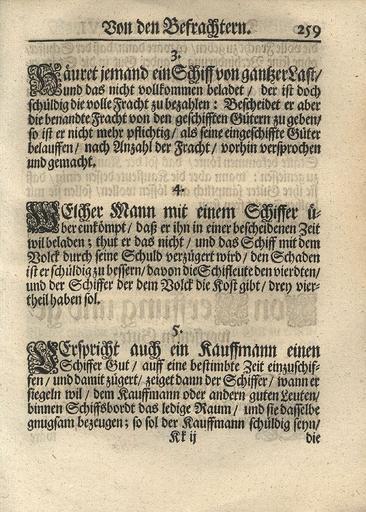 Von den Befrachtern. 259
3.
Häuret jemand ein Schiff von gantzer Last/
und das nicht vollkommen beladet / der ist doch
schüldig die volle Fracht zu bezahlen : Bescheidet er aber
die benandte Fracht von den geschifften Gütern zu geben/
so ist er nicht mehr pflichtig/ als seine eingeschiffte Güter
belauffen/ nach Anzahl der Fracht/ vorhin versprochen
und gemacht.
4.
WElcher Mann mit einem Schiffer ü-
ber einkömpt/ daß er ihn in einer bescheidenen Zeit
wil beladen; thut er das nicht/ und das Schiff mit dem
Volck durch seine Schuld verzügert wird/ den Schaden
ist er schüldig zu bessern/ davon die Schiffleute den vierdten/
und der Schiffer der dem Volck die Kost gibt/ drey vier-
theil haben sol.
5.
VErspricht auch ein Kauffmann einen
Schiffer Gut/ auff eine bestimbte Zeit einzuschif-
fen/ und damit zügert/ zeiget dann der Schiffer/ wann er
siegeln wil/ dem Kauffmann oder andern guten Leuten/
binnen Schiffsbordt das ledige Raum/ und sie dasselbe
gnugsam bezeugen; so sol der Kauffmann schüldig seyn/
Kk ij die